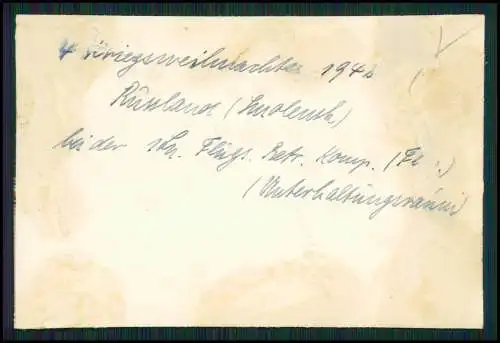 4 Kriegsweihnachten 1942
Russland (Smolensk)
bei der Flugh. Betr. Komp. (Fl
(Unterhaltungsraum)